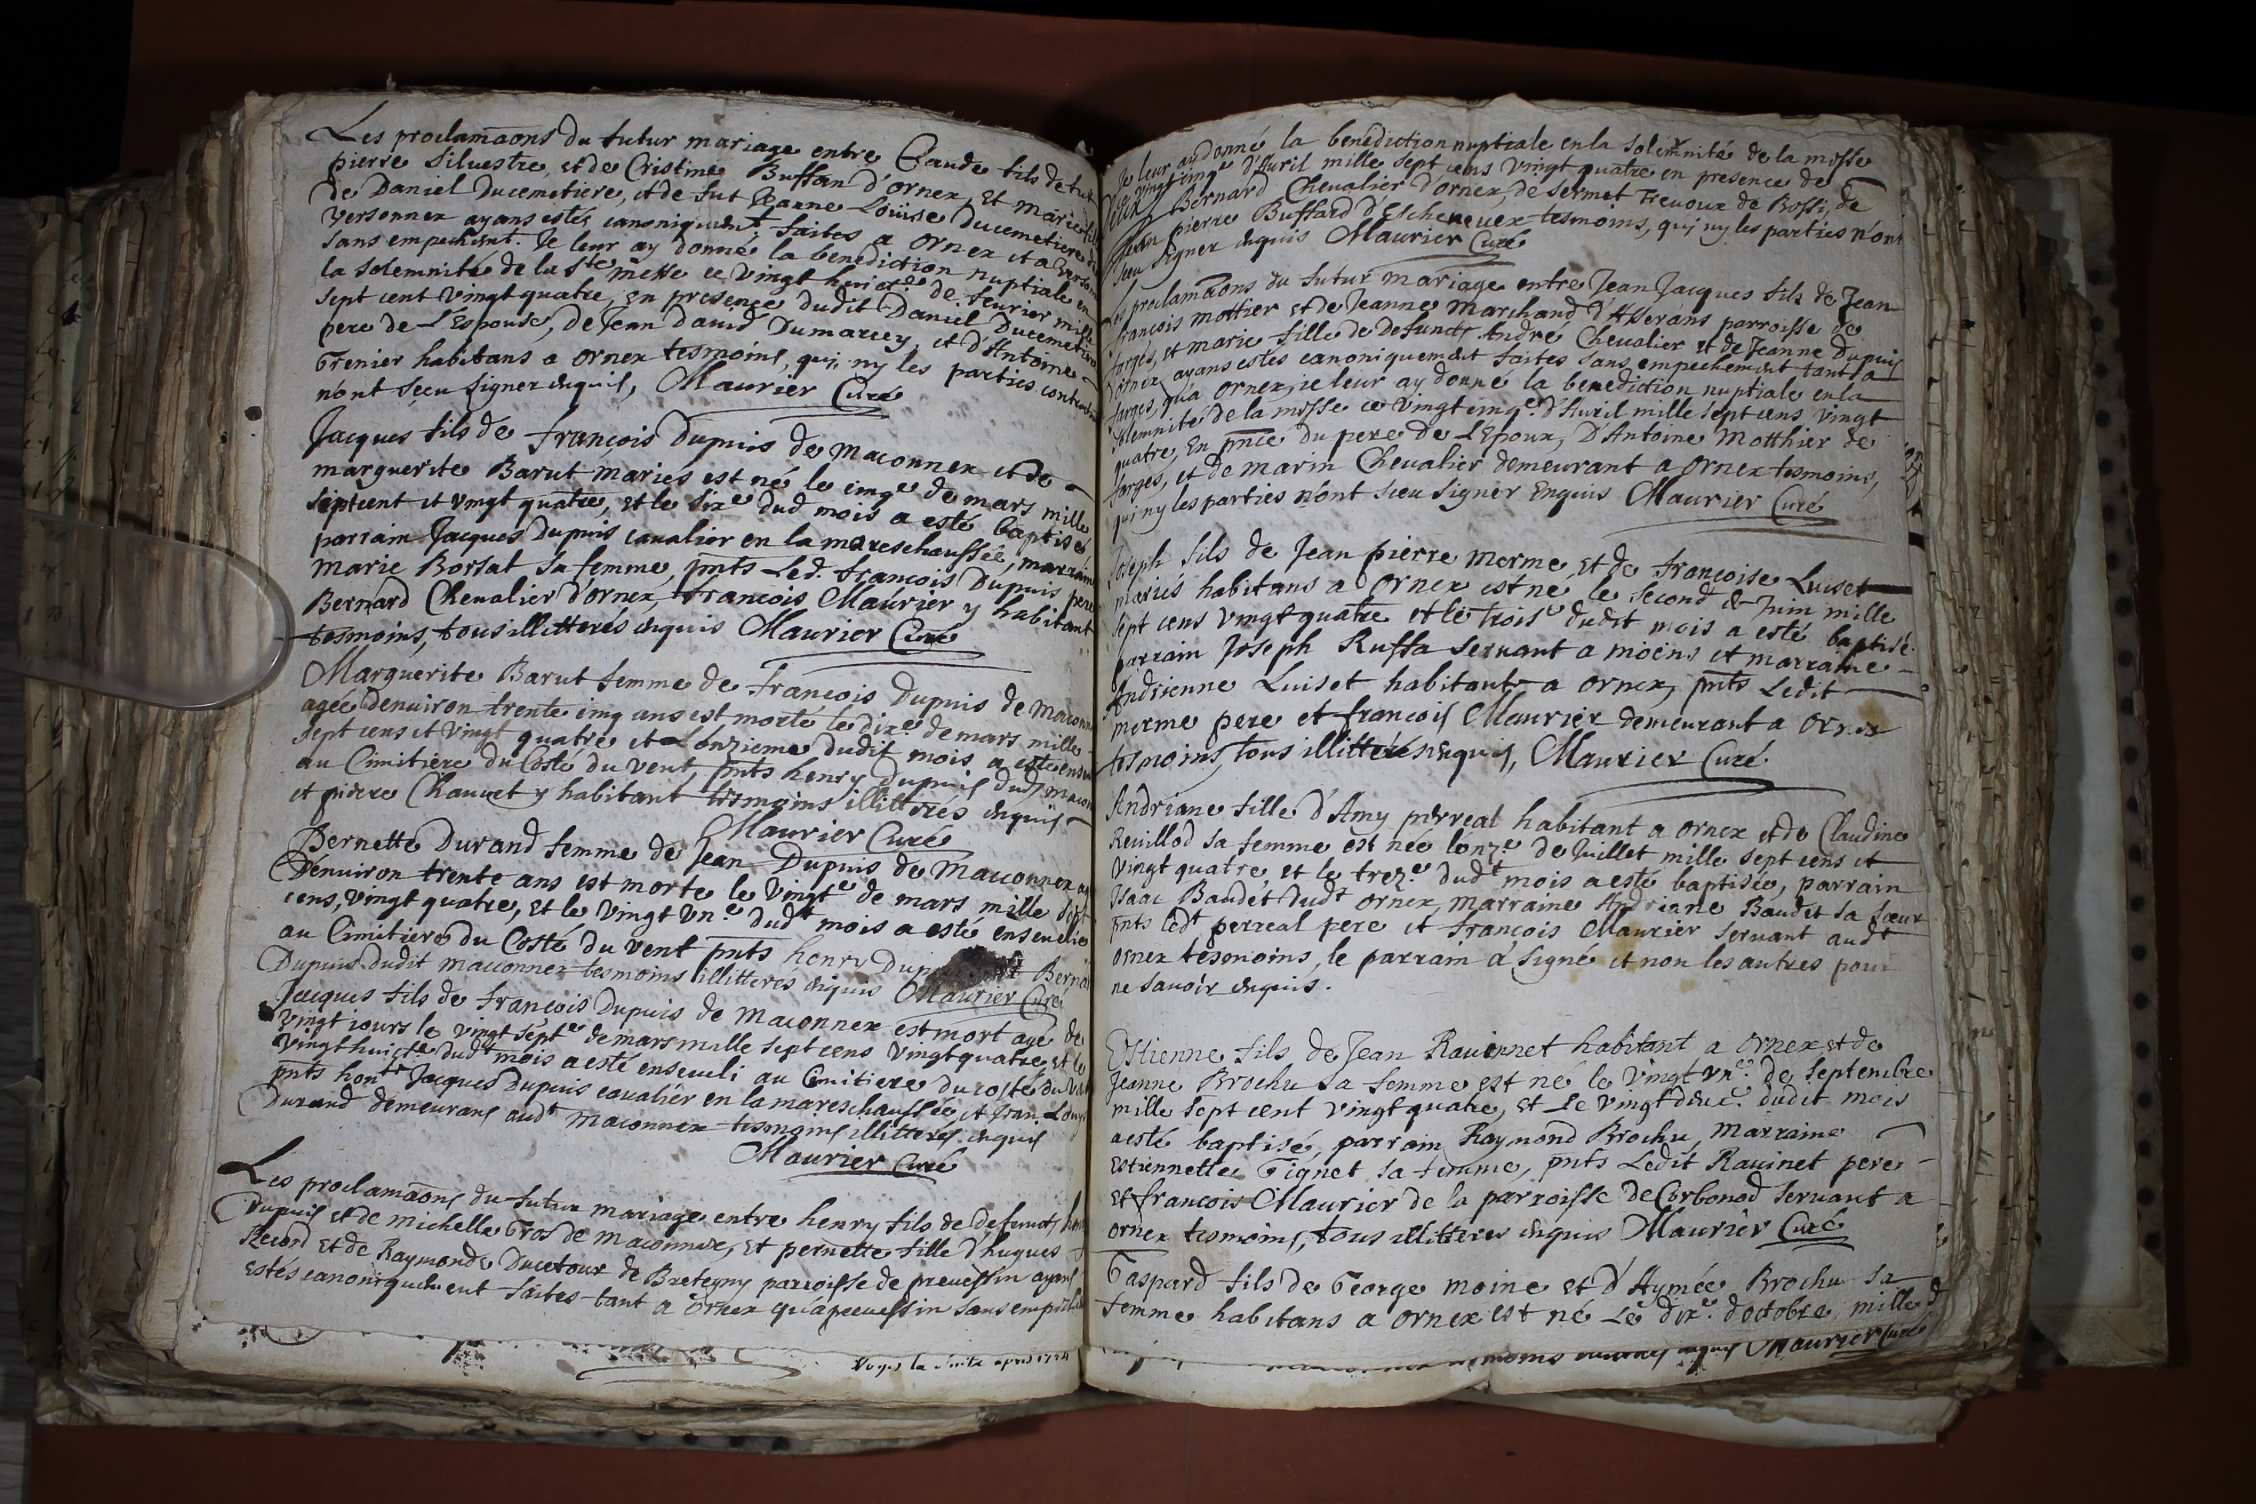 Les proclamaons du futur mariage entre Claude fils de fut
pierre Siluestre, et de Cristine Buffan d'ornex, Et marie fille
de Daniel Ducemetiere, et de fut Jeanne Loüise Ducemetiere de
Versonnex ayans estés canoniquemt. faites a ornex et a Verson
sans empechemt. Je leur ay donné la benediction nuptiale en
la solemnité de la Ste messe ce vingt huicte. de feurier mille
sept cent vingt quatre, en presence dudit Daniel Ducemetiere
pere de L'Espouse, de Jean Dauid Dumarcey, et d'Antoine
Grenier habitans a ornex tesmoins, qui, ny les parties contract
n'ont sçeu signer enquis, Maurier Curé
Jacques fils de françois Dupuis de maconnex et de
marguerite Barut mariés est né le cinqe de mars mille
septcent et vingt quatre, et le sixe dud mois a esté baptisé,
parrain Jacques Dupuis caualier en la mareschaussée, marraine
marie Borsat sa femme, pnts Led. françois Dupuis pere
Bernard Cheualier d'ornex, françois Maurier y habitant
tesmoins, tous illitterés enquis Maurier Curé
Marguerite Barut femme de françois Dupuis de maconne
agée denuiron trente cinq ans est morte le dixe de mars mille
sept cens et vingt quatre et Lonzieme dudit mois a esté ense
au Cimitiere du Costé du vent, pnts henry Dupuis dud macon
et pierre Chauuet y habitant tesmoins illitterés enquis
Maurier Curé
Bernette Durand femme de Jean Dupuis de Maconnex ag
Denuiron trente ans est morte le vingte de mars mille sept
cens, vingt quatre, et le vingt vne dudt mois a esté enseuelie
au Cimitiere du Costé du vent pnts henry Dupuis Bernar
Dupuis dudit maconnex tesmoins illitterés enquis Maurier Curé
Jacques fils de françois Dupuis de maconnex est mort agé de
vingt iours le vingt septe de mars mille sept cens vingt quatre, et le
vingt huicte dudt mois a esté enseueli au Cimitiere du costé du vent
pnts honte Jacques Dupuis caualier en la mareschaussée, et Jean Louys
Durand demeurans audt maconnex tesmoins illitterés enquis
Maurier Curé
Les proclamaons du futur mariage entre henry fils de defuncts hen
Dupuis et de michelle Gros de maconnex, et pernette fille d'hugues
Recond et de Raymonde Ducetour de Bretegny parroisse de preuessin ayans
estés canoniquement faites tant a ornex qu'a preuessin sans empeche
Voyés la suite apres 1724
Je leur ay donné la benediction nuptiale en la solemnité de la messe
ce vingt cinqe d'Auril mille sept cens vingt quatre en presence de
Bernard Cheualier d'ornex, de sermet Freuoux de Bossi, de
Jean pierre Buffard d'Escheneuex tesmoins, qui ny les parties n'ont
sceu signer enquis Maurier Curé
Les proclamaons du futur mariage entre Jean Jacques fils de Jean
françois mottier et de Jeanne marchand d'Asserans parroisse de
farges, et marie fille de Defuncts André Cheualier et de Jeanne Dupuis
d'ornex ayans estés canoniquement faites sans empechement tant a
farges, qu'a ornex, ie leur ay donné la benediction nuptiale en la
solemnité de la messe ce vingt cinqe. d'Auril mille sept cens vingt
quatre, En pnce du pere de L'Epoux, D'Antoine Motthier de
farges, et de marin Cheualier demeurant a ornex tesmoins,
qui ny les parties n'ont sceu signer Enquis Maurier Curé
Joseph fils de Jean pierre merme, et de françoise Luiset
mariés habitans a ornex est né le second de Juin mille
sept cens vingt quatre et le troise dudit mois a esté baptisé.
parrain Joseph Ruffa seruant a moëns et marraine
Andrienne Luiset habitante a ornex, pnts Ledit
merme pere et françois Maurier demeurant a ornex
tesmoins, tous illitterés enquis, Maurier Curé
Andriane fille d'Amy perreal habitant a ornex et de Claudine
Reuillod sa femme est née lonze de Juillet mille sept cens et
vingt quatre, et le treze. dudt mois a esté baptisée, parrain
Isaac Baudet dudt ornex, marraine Andriane Baudet sa sœur
pnts ledt perreal pere et françois Maurier seruant audt
ornex tesmoins, le parrain a signé et non les autres pour
ne sauoir enquis.
Estienne fils de Jean Rauinet habitant a ornex et de
Jeanne Brochu sa femme est né le vingt vne. de septembre
mille sept cent vingt quatre, et Le vingt deuxe. dudit mois
a esté baptisé, parrain Raymond Brochu, marraine
Estiennette Gignet sa femme, pnts Ledit Rauinet pere
et françois Maurier de la parroisse de Corbonod seruant a
ornex tesmoins, tous illitteres enquis Maurier Curé
Gaspard fils de George moine et d'Aymée Brochu sa
femme habitans a ornex est né Le dixe. d'octobre mille
Maurier Curé